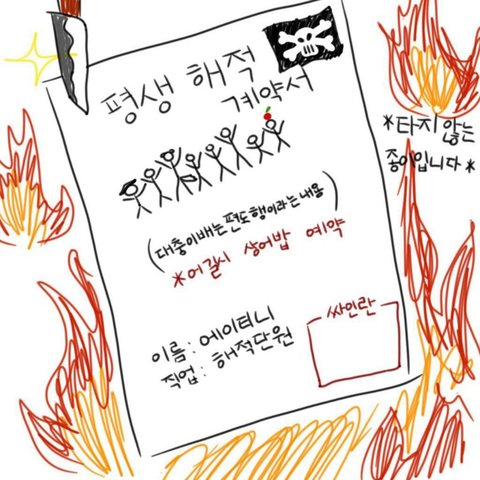 평생 해적
계약서
*타지 않는
종이입니다*
(대충이배는편도행이라는내용)
*어길시 상어밥 예약
이름: 에이티니
직업: 해적단원
싸인란